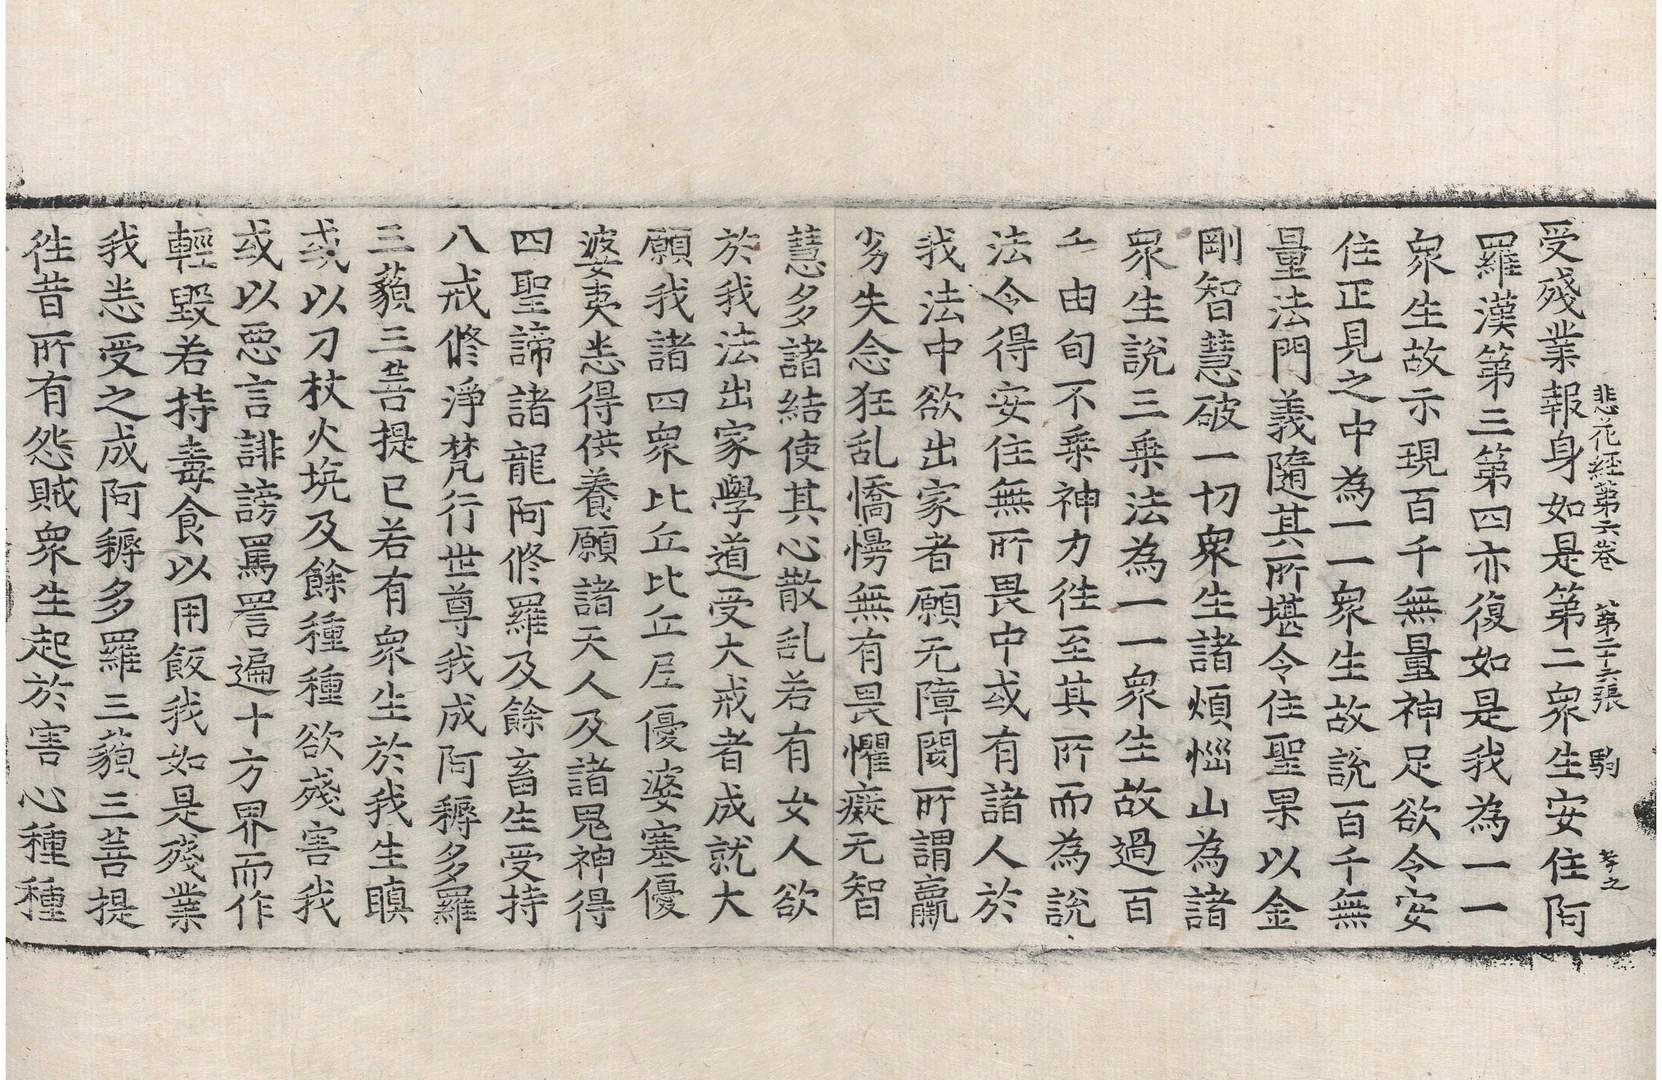 悲花經第六卷 第二十六張 駒 孝之
受殘業報身如是第二衆生安住阿
羅漢第三第四亦復如是我為一一
衆生故示現百千無量神足欲令安
住正見之中為一一衆生故說百千無
量法門義隨其所堪令住聖果以金
剛智慧破一切衆生諸煩惱山為諸
衆生說三乗法為一一衆生故過百
千由旬不乗神力徃至其所而為說
法令得安住無所畏中或有諸人於
我法中欲出家者願无障閡所謂羸
劣失念狂乱憍慢無有畏懼癡无智
慧多諸結使其心散乱若有女人欲
於我法出家學道受大戒者成就大
願我諸四衆比丘比丘尼優婆塞優
婆夷悉得供養願諸天人及諸鬼神得
四聖諦諸龍阿修羅及餘畜生受持
八戒修淨梵行世尊我成阿耨多羅
三藐三菩提已若有衆生於我生瞋
或以刀杖火坑及餘種種欲殘害我
或以惡言誹謗罵詈遍十方界而作
輕毀若持毒食以用飯我如是殘業
我悉受之成阿耨多羅三藐三菩提
徃昔所有怨賊衆生起於害心種種